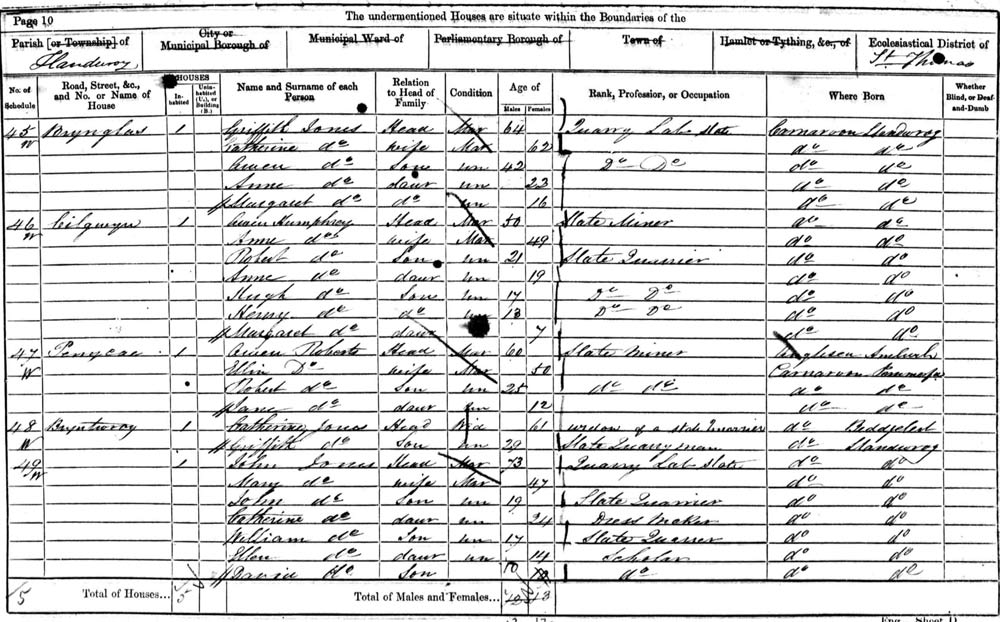 Page 10 The undermentioned Houses are situate within the Boundaries of the
Parish [or Township] of City or Municipal Borough of Municipal Ward of Parliamentary Borough of Town of Hamlet or Tything, &c., of Ecclesiastical District of
Llandwrog St. Thomas
No. of Schedule Road, Street, &c., and No. or Name of House HOUSES Inhabited Uninhabited (U.), or Building (B.) Name and Surname of each Person Relation to Head of Family Condition Age of Males Females Rank, Profession, or Occupation Where Born Whether Blind, or Deaf-and-Dumb
45 Brynglas 1 Griffith Jones Head Mar 64 Quarry Lab Slate Carnarvon Llandwrog
W Catherine do wife Mar 62 do do
Owen do Son un 42 Do Do do do
Anne do daur un 23 do do
Margaret do do un 16 do do
46 Cilgwyn 1 Owen Humphrey Head Mar 50 Slate Miner do do
W Anne do wife Mar 49 do do
Robert do Son un 21 Slate Quarrier do do
Anne do daur un 19 do do
Hugh do Son un 17 Do Do do do
Henry do do un 13 Do Do do do
Margaret do daur 7 do do
47 Penycae 1 Owen Roberts Head Mar 60 Slate Miner Anglesea Amlwch
W Ellin Do wife Mar 50 Carnarvon
Robert do Son un 25 do do do do
Jane do daur un 12 do do
48 1 Catherine Jones Head Wid 61 widow of a slate Quarrier do Beddgelert
W Griffith do Son un 29 Slate Quarryman do Llandwrog
49 1 John Jones Head Mar 73 Quarry Lab Slate do do
W Mary do wife Mar 47 do do
John do Son un 19 Slate Quarrier do do
Catherine do daur un 24 Dress Maker do do
William do Son un 17 Slate Quarrier do do
Ellen do daur un 14 Scholar do do
David do Son 10 do do do
15 Total of Houses... 5 Total of Males and Females... 13
Eng.—Sheet D.